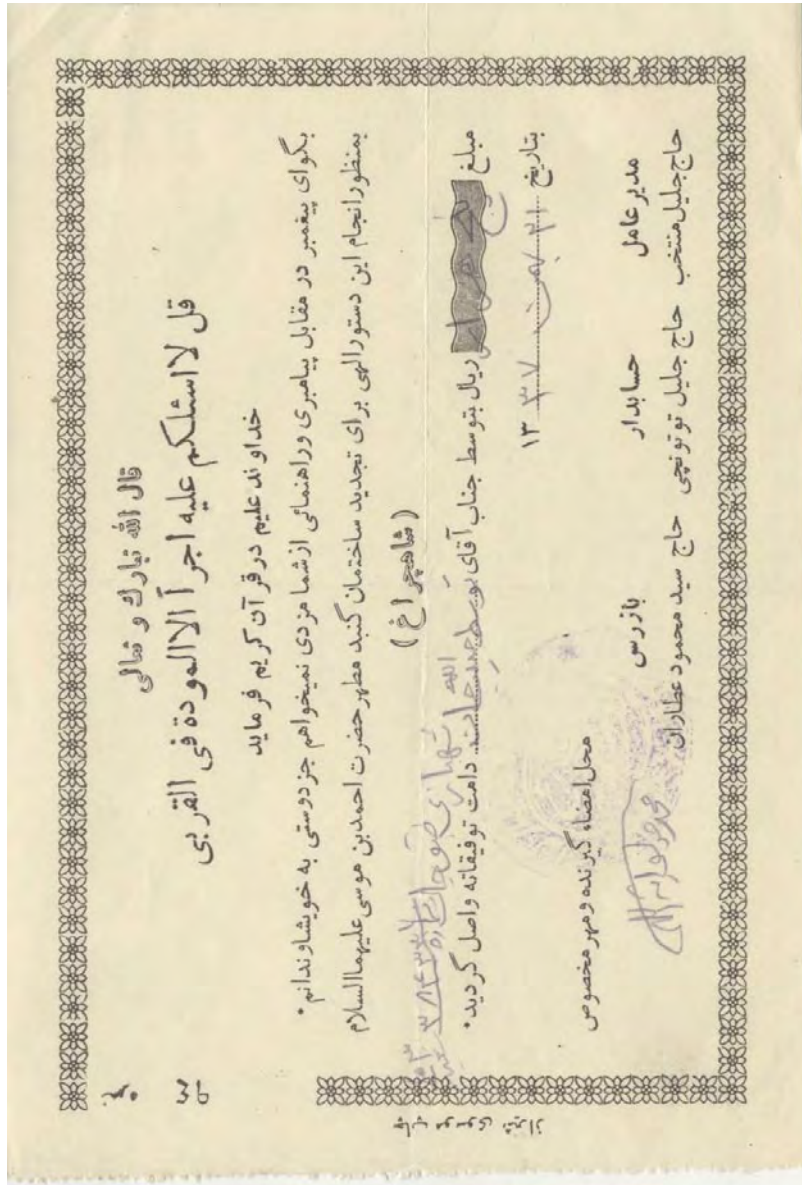 قال الله تبارك و تعالى
قل لا اسئلكم عليه اجراً الا المودة فى القربى
خداوند عليم در قرآن كريم فرمايد
بگوای پیغمبر در مقابل پیامبری وراهنمائی ازشما مزدی نمیخواهم جزدوستی به خویشاوندانم .
بمنظورانجام این دستورالهی برای تجدید ساختمان گنبد مطهر حضرت احمدبن موسی علیهماالسلام
(شاهچراغ)
مبلغ ریال بتوسط جناب آقای دامت توفیقاته واصل گردید .
بتاریخ ۲۱ بهمن ۱۳۳۷
بازرس حسابدار مدیرعامل
حاج سید محمود عطاران حاج جلیل توتونچی حاج جلیل منتخب
محل امضاء گیرنده و مهر مخصوص